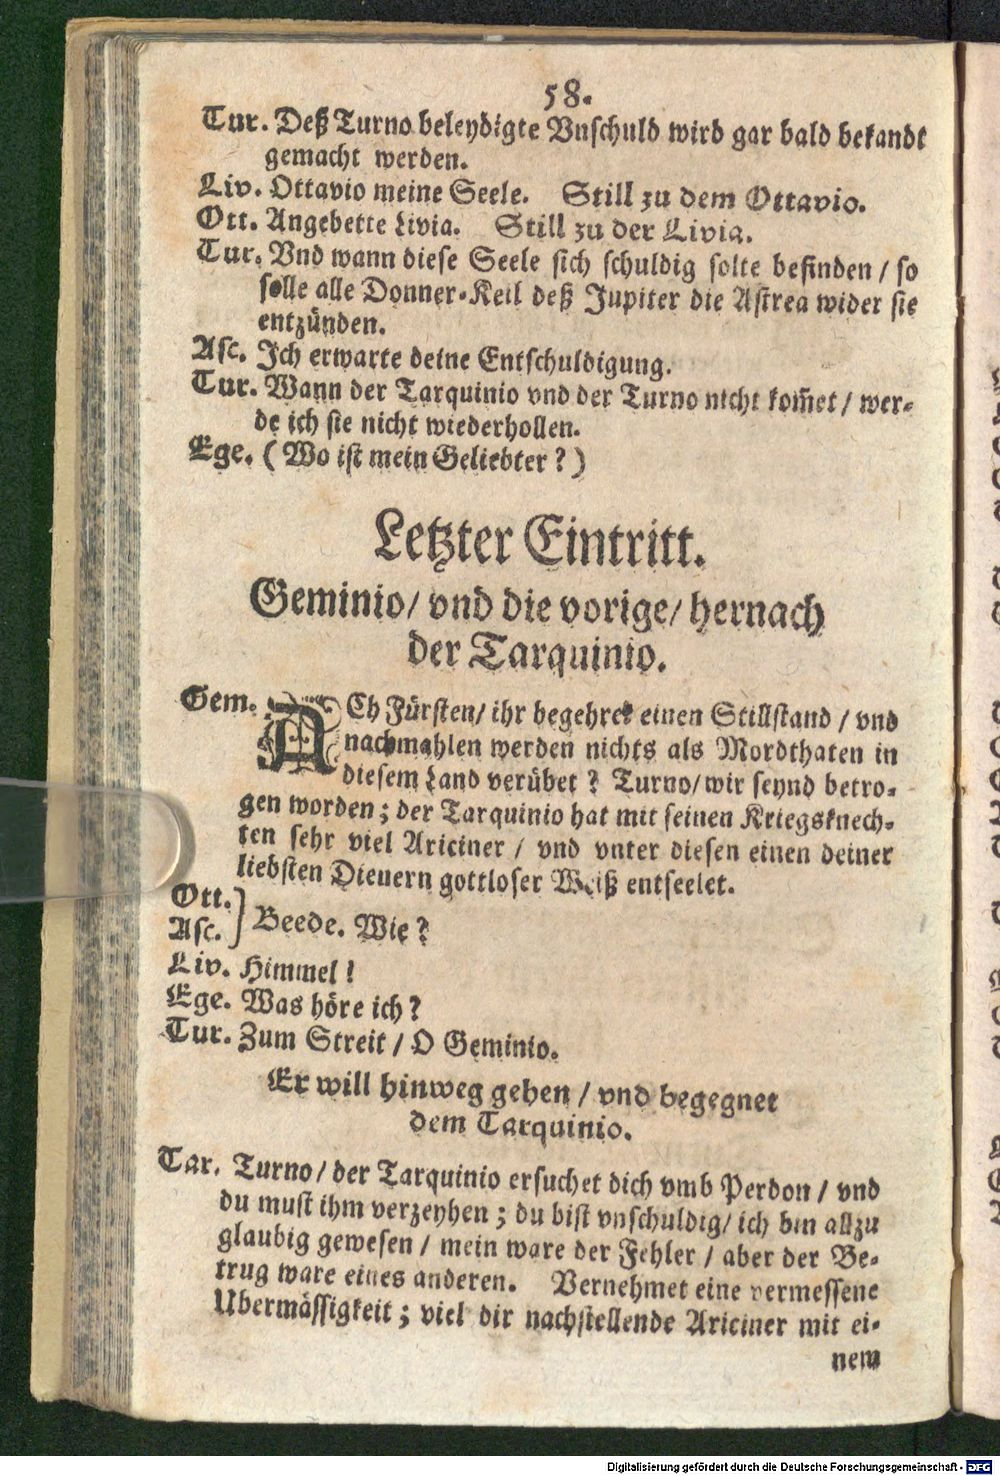 58.
Tur. Deß Turno beleydigte Vnschuld wird gar bald bekandt
gemacht werden.
Liv. Ottavio meine Seele. Still zu dem Ottavio.
Ott. Angebette Livia. Still zu der Livia.
Tur. Vnd wann diese Seele sich schuldig solte befinden / so
solle alle Donner-Keil deß Jupiter die Astrea wider sie
entzünden.
Asc. Ich erwarte deine Entschuldigung.
Tur. Wann der Tarquinio vnd der Turno nicht kom̃et / wer-
de ich sie nicht wiederhollen.
Ege. ( Wo ist mein Geliebter ? )
Letzter Eintritt.
Geminio/ vnd die vorige/ hernach
der Tarquinio.
Gem. ACh Fürsten/ ihr begehret einen Stillstand / vnd
nachmahlen werden nichts als Mordthaten in
diesem Land verübet ? Turno/ wir seynd betro-
gen worden ; der Tarquinio hat mit seinen Kriegsknech-
ten sehr viel Ariciner / vnd vnter diesen einen deiner
liebsten Dienern gottloser Weiß entseelet.
Ott.
Asc. } Beede. Wie ?
Liv. Himmel !
Ege. Was höre ich ?
Tur. Zum Streit / O Geminio.
Er will hinweg gehen / vnd begegnet
dem Tarquinio.
Tar. Turno/ der Tarquinio ersuchet dich vmb Perdon / vnd
du must ihm verzeyhen ; du bist vnschuldig/ ich bin allzu
glaubig gewesen / mein ware der Fehler / aber der Be-
trug ware eines anderen. Vernehmet eine vermessene
Ubermässigkeit ; viel dir nachstellende Ariciner mit ei-
nem
Digitalisierung gefördert durch die Deutsche Forschungsgemeinschaft - DFG